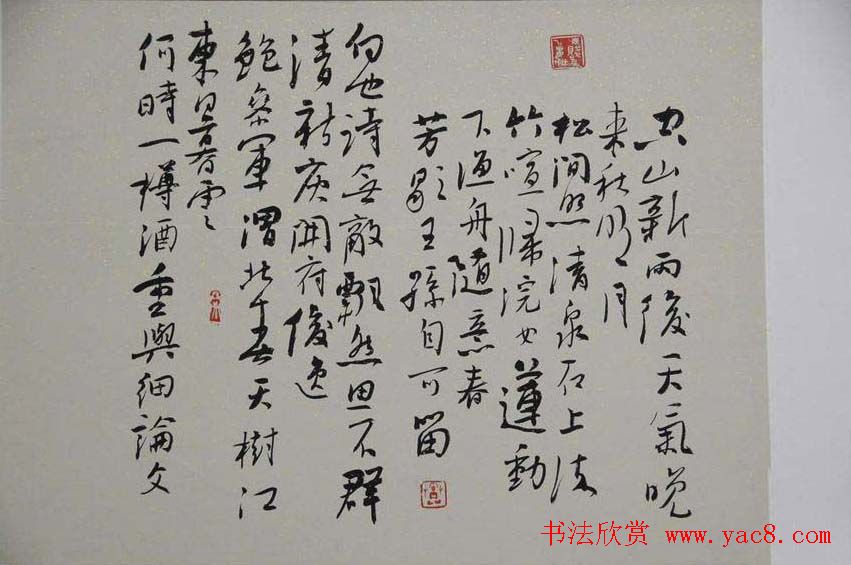 空山新雨後天氣晚
来秋明月
松間照清泉石上流
竹喧歸浣女蓮動
下漁舟隨意春
芳歇王孫自可留
白也詩無敵飄然思不群
清新庾開府俊逸
鮑參軍渭北春天樹江
東日暮雲
何時一樽酒重與細論文
书法欣赏 www.yac8.com